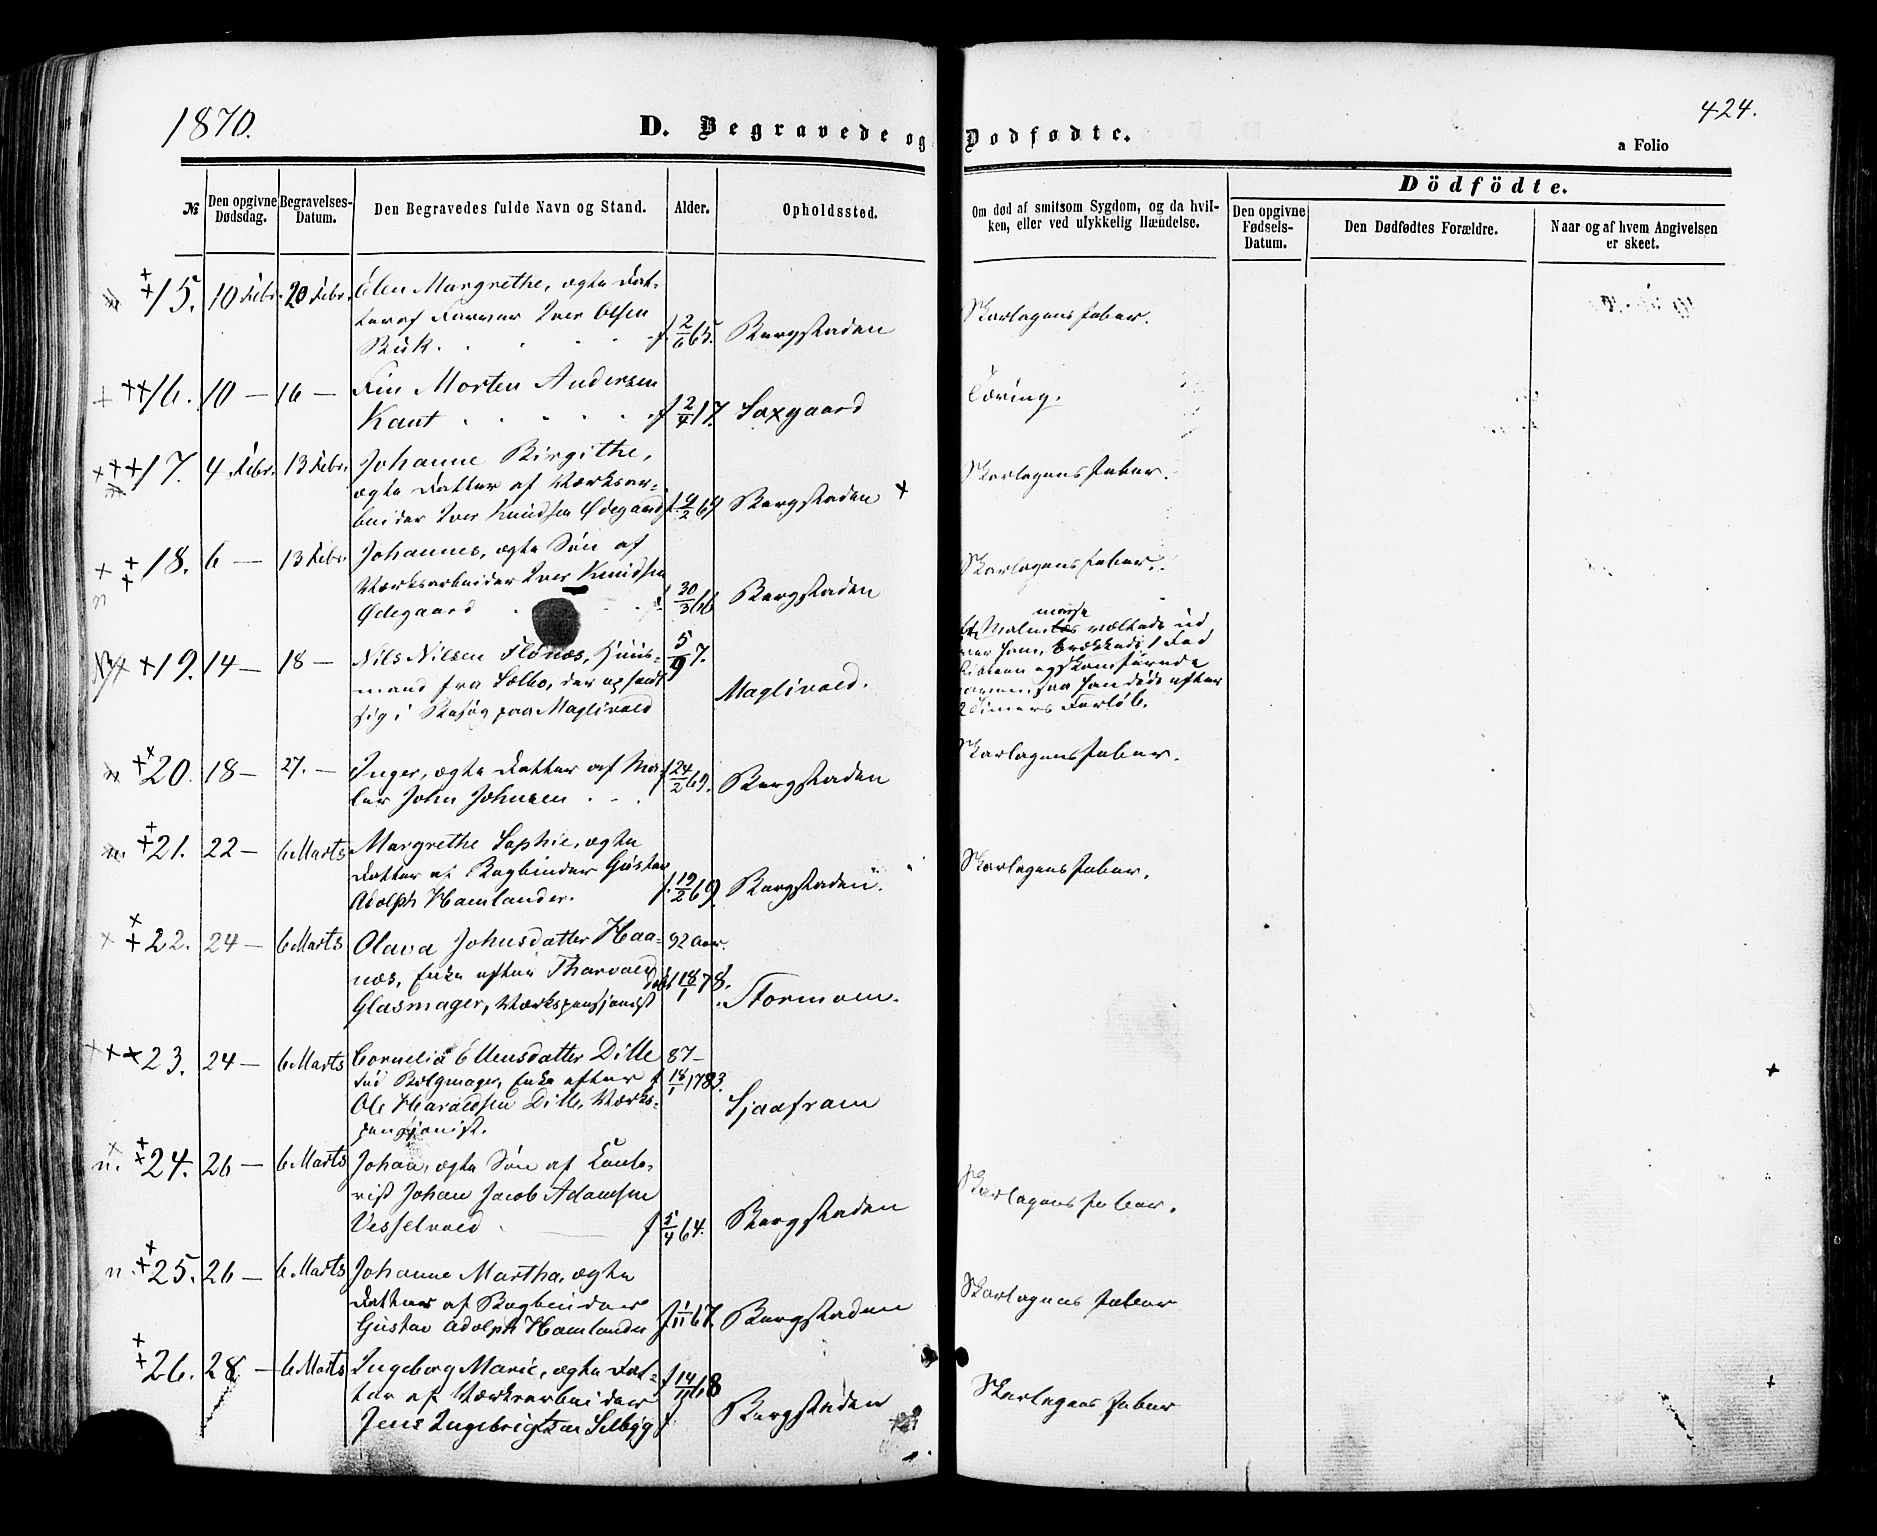 1870.
D. Begravede og Dodfødte.
424.
a Folio
№
Den opgivne Dødsdag.
Begravelses-Datum.
Den Begravedes fulde Navn og Stand.
Alder.
Opholdssted.
Om død af smitsom Sygdom, og da hvil-
ken, eller ved ulykkelig Hændelse.
Dödfödte.
Den opgivne Fødsels-Datum.
Den Dødfødtes Forældre.
Naar og af hvem Angivelsen er skeet.
15. 10 Febr. 20 Febr. Elen Margrethe, ægte Dat-
ter af Farver Iver Olsen
Buk. f. 2/6 65. Bergstaden Skarlagensfeber.
16. 10 — 16 — Fin Morten Andersen
Kant f 2/4 17. Saxgaard Tæring.
17. 4 Febr. 13 Febr. Johanne Birgithe,
ægte Datter af Værksar-
beider Iver Knudsen Ødegaard Bergstaden Skarlagensfeber.
18. 6 — 13 Febr. Johannes, ægte Søn af
Værksarbeider Iver Knudsen
Ødegaard f. 30/3 66 Bergstaden Skarlagensfeber.
19. 14 — 18 — Nils Nilsen Flönæs, Huus-
mand fra Sælbo, der opholdt
sig i Besøg paa Maglivold 5/9 7. Maglivold.
Et Malmlæs væltede ud
over ham, brækkede 1 Fod
saa han døde efter
2 Timers Forløb.
20. 18 — 27. — Inger, ægte Datter af Ma-
ler John Johnsen f 24/2 69. Bergstaden Skarlagensfeber.
21. 22 — 6 Marts Margrethe Sophie, ægte
Datter af Bogbinder Gustav
Adolph Hamlander. f. 19/2 69. Bergstaden. Skarlagensfeber.
22. 24 — 6 Marts Olava Johnsdatter Haa-
næs, Enke efter Thorvald
Glasmager, Værkspensjonist 92 Aar. 18/1 78. Stormoen.
23. 24 — 6 Marts Cornelia Ellensdatter Dille
fød Bælgmager, Enke efter
Ole Haraldsen Dille, Værks-
pensjonist. 87 — f 18/1 1783. Sjaafram
24. 26 — 6 Marts Johan, ægte Søn af Conto-
rist Johan Jacob Adamsen
Vesselvold f 5/4 64. Bergstaden Skarlagensfeber.
25. 26 — 6 Marts Johanne Martha, ægte
Datter af Bogbinder
Gustav Adolph Hamlander f 1/11 67. Bergstaden Skarlagensfeber
26. 28 — 6 Marts Ingeborg Marie, ægte Dat-
ter af Værksarbeider
Jens Ingebrigtsen Selbyg f 14/11 68 Bergstaden Skarlagensfeber